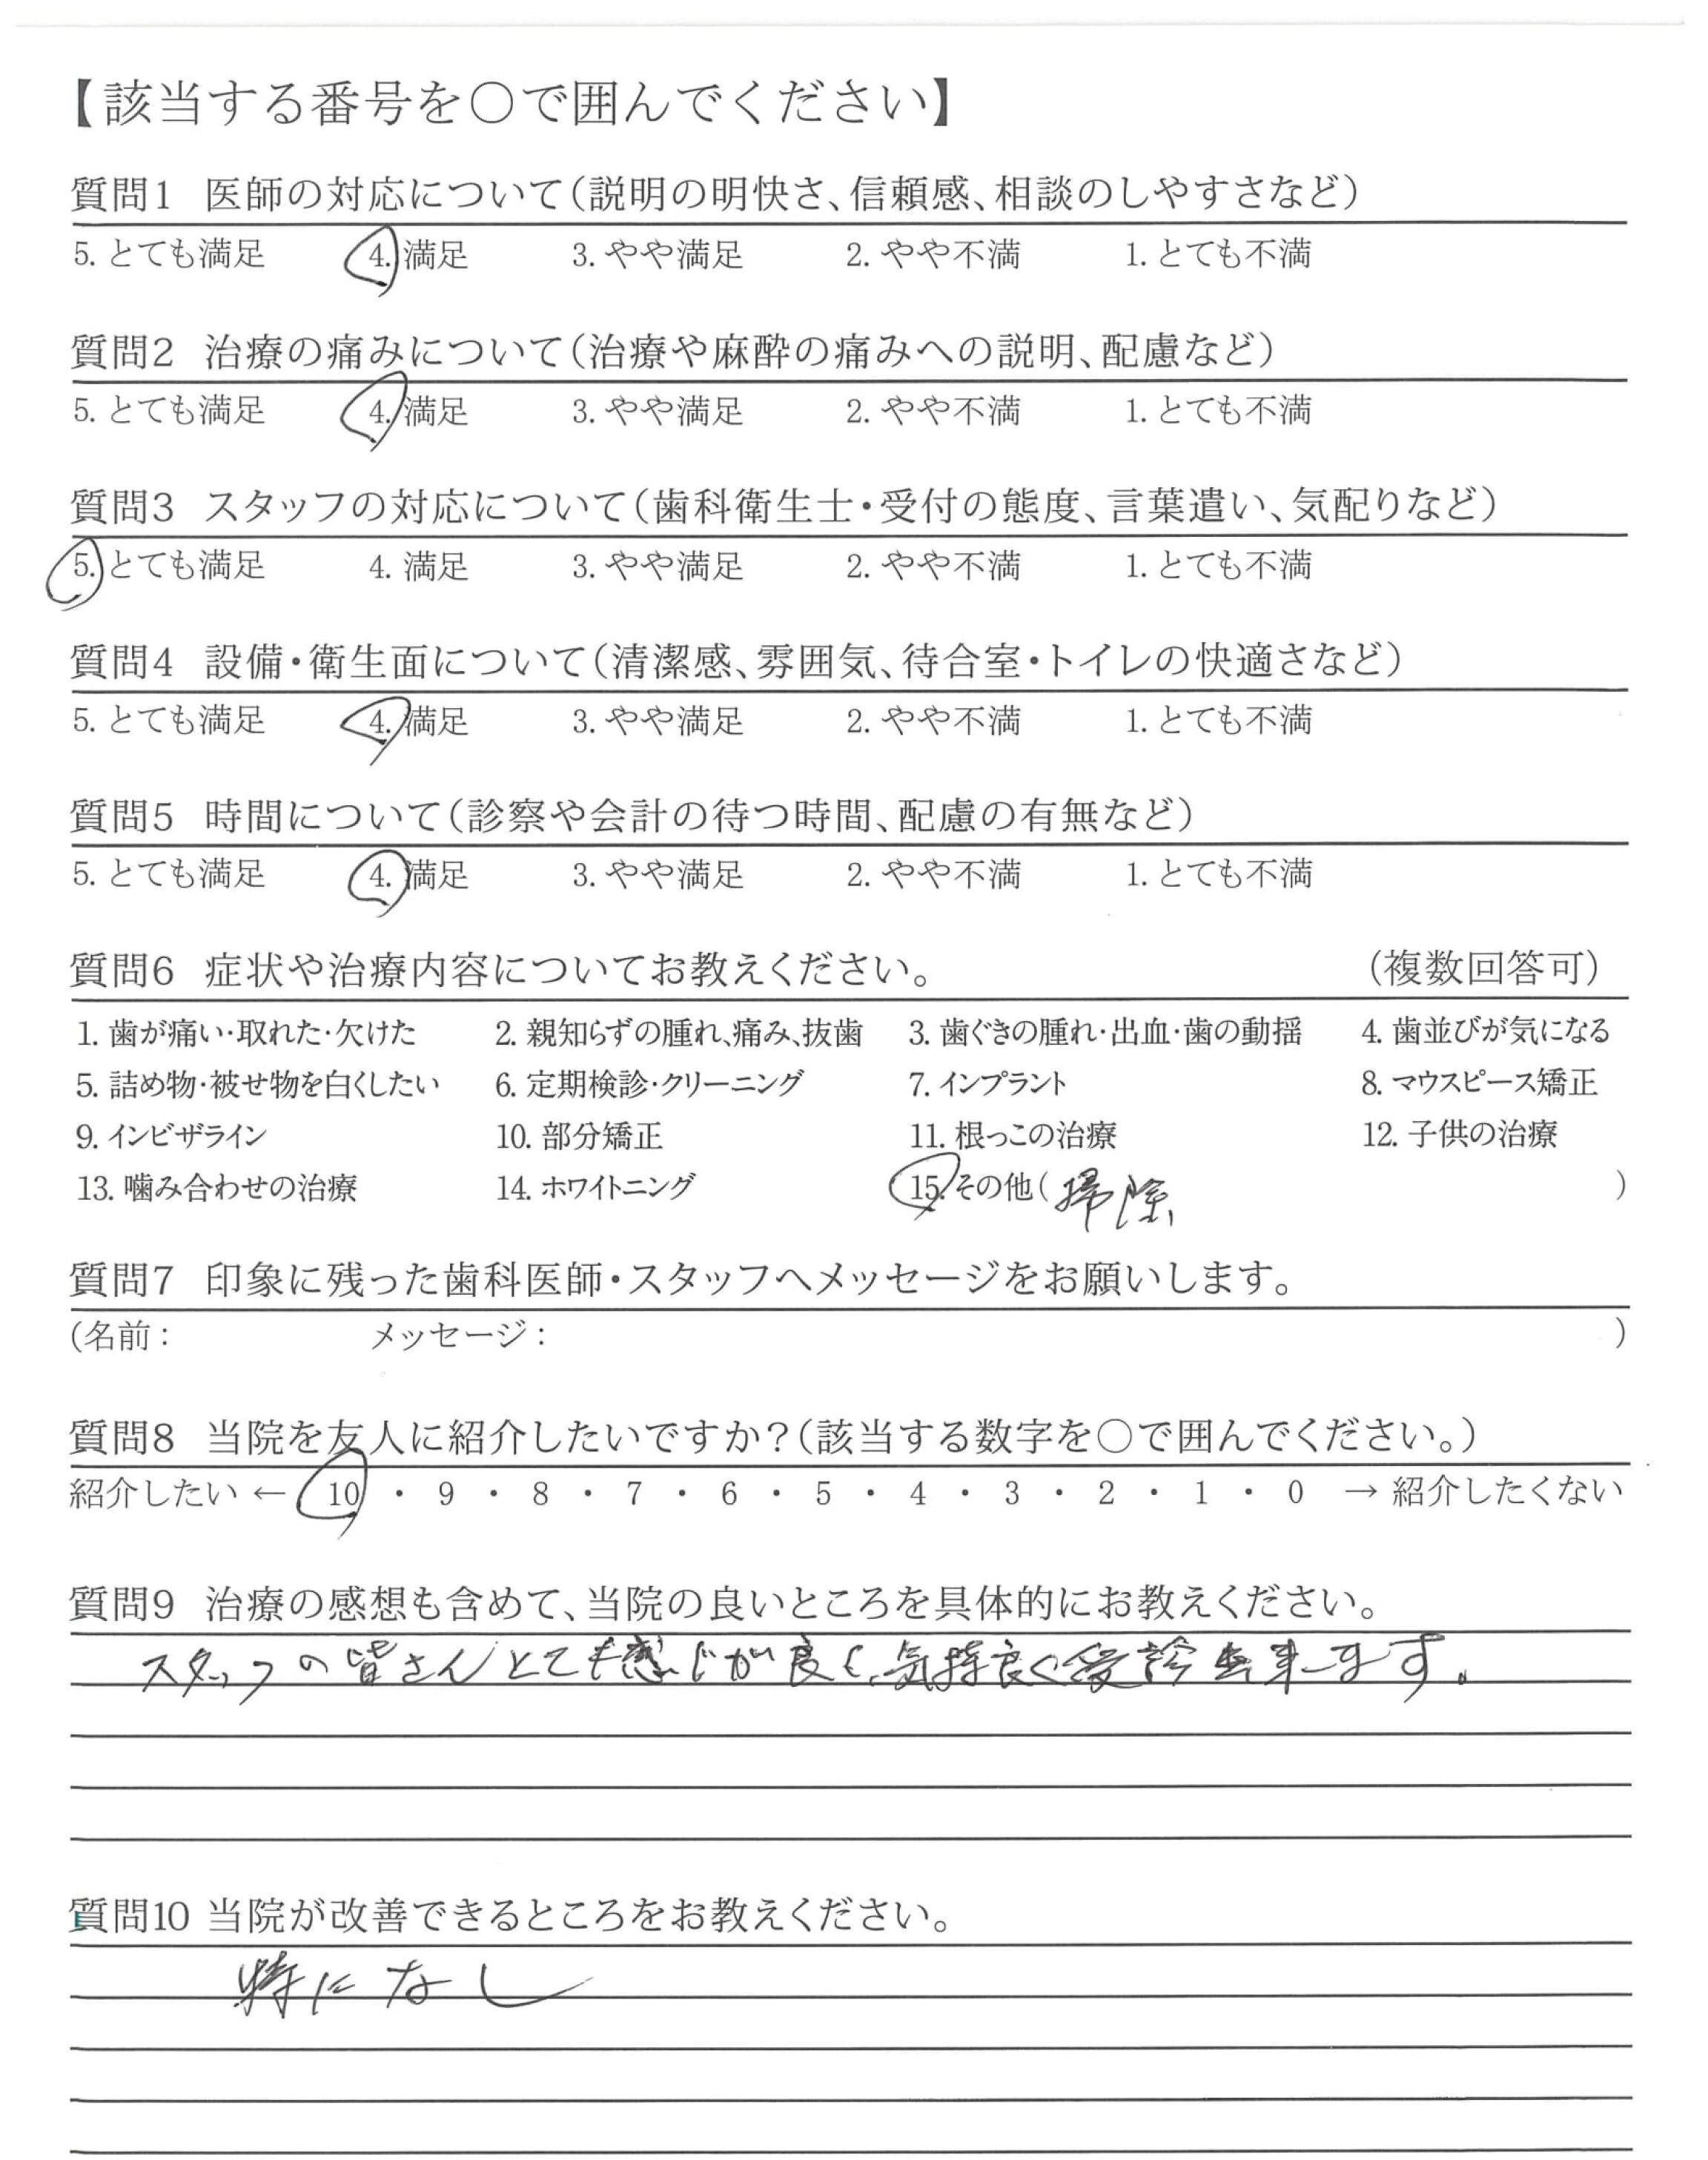 【該当する番号を○で囲んでください】
質問1 医師の対応について(説明の明快さ、信頼感、相談のしやすさなど)
5. とても満足 4. 満足 3. やや満足 2. やや不満 1. とても不満
質問2 治療の痛みについて(治療や麻酔の痛みへの説明、配慮など)
5. とても満足 4. 満足 3. やや満足 2. やや不満 1. とても不満
質問3 スタッフの対応について(歯科衛生士・受付の態度、言葉遣い、気配りなど)
5. とても満足 4. 満足 3. やや満足 2. やや不満 1. とても不満
質問4 設備・衛生面について(清潔感、雰囲気、待合室・トイレの快適さなど)
5. とても満足 4. 満足 3. やや満足 2. やや不満 1. とても不満
質問5 時間について(診察や会計の待つ時間、配慮の有無など)
5. とても満足 4. 満足 3. やや満足 2. やや不満 1. とても不満
質問6 症状や治療内容についてお教えください。 (複数回答可)
1. 歯が痛い・取れた・欠けた 2. 親知らずの腫れ、痛み、抜歯 3. 歯ぐきの腫れ・出血・歯の動揺 4. 歯並びが気になる
5. 詰め物・被せ物を白くしたい 6. 定期検診・クリーニング 7. インプラント 8. マウスピース矯正
9. インビザライン 10. 部分矯正 11. 根っこの治療 12. 子供の治療
13. 噛み合わせの治療 14. ホワイトニング 15. その他( 掃除 )
質問7 印象に残った歯科医師・スタッフへメッセージをお願いします。
(名前: メッセージ: )
質問8 当院を友人に紹介したいですか?(該当する数字を○で囲んでください。)
紹介したい ← 10 ・ 9 ・ 8 ・ 7 ・ 6 ・ 5 ・ 4 ・ 3 ・ 2 ・ 1 ・ 0 → 紹介したくない
質問9 治療の感想も含めて、当院の良いところを具体的にお教えください。
スタッフの皆さんとても感じが良く、気持良く受診出来ます。
質問10 当院が改善できるところをお教えください。
特になし